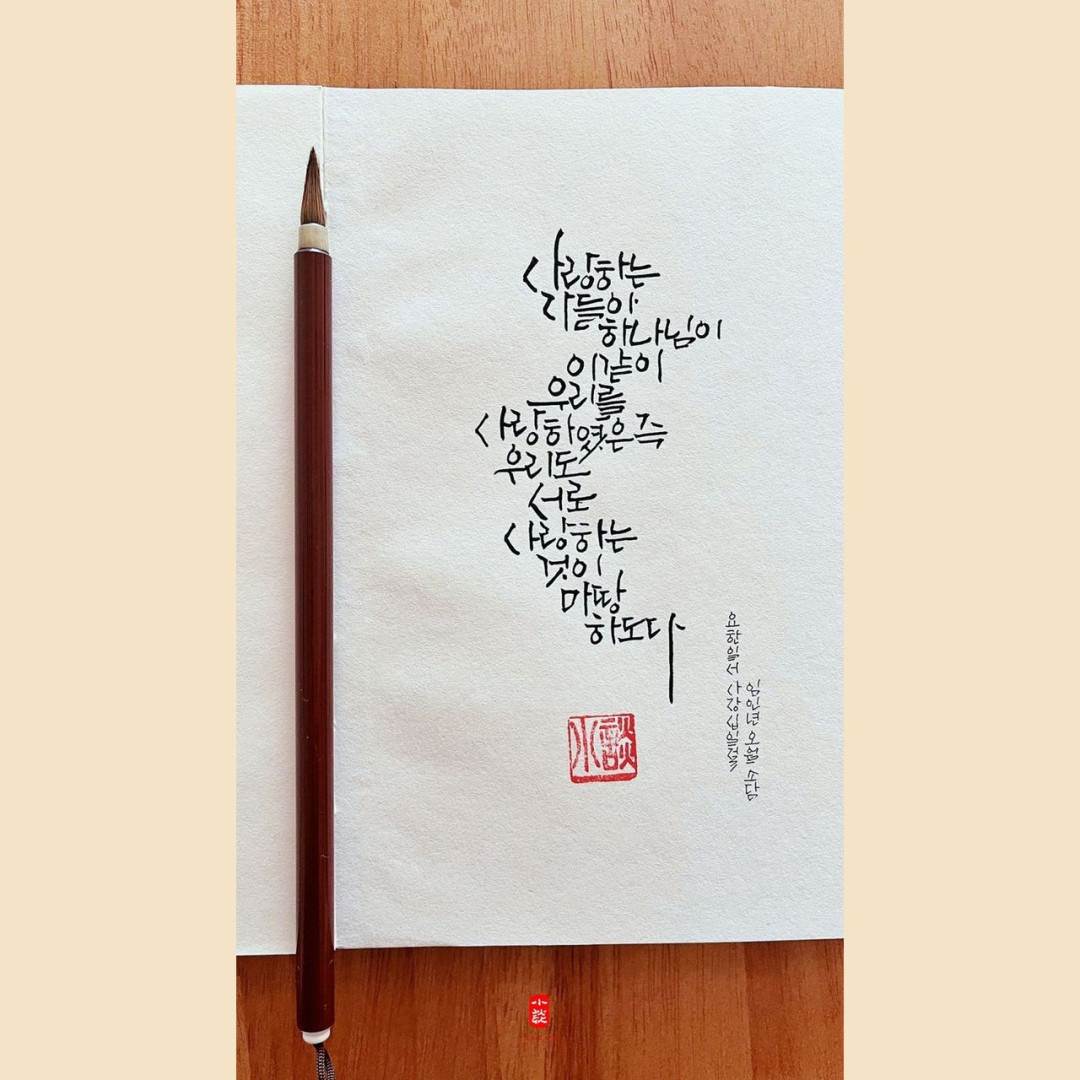 사랑하는
자들아
하나님이
이같이
우리를
사랑하였은즉
우리도
서로
사랑하는
것이
마땅
하도다
요한일서 사장 십일절
임인년 오월 소담
小談
小談